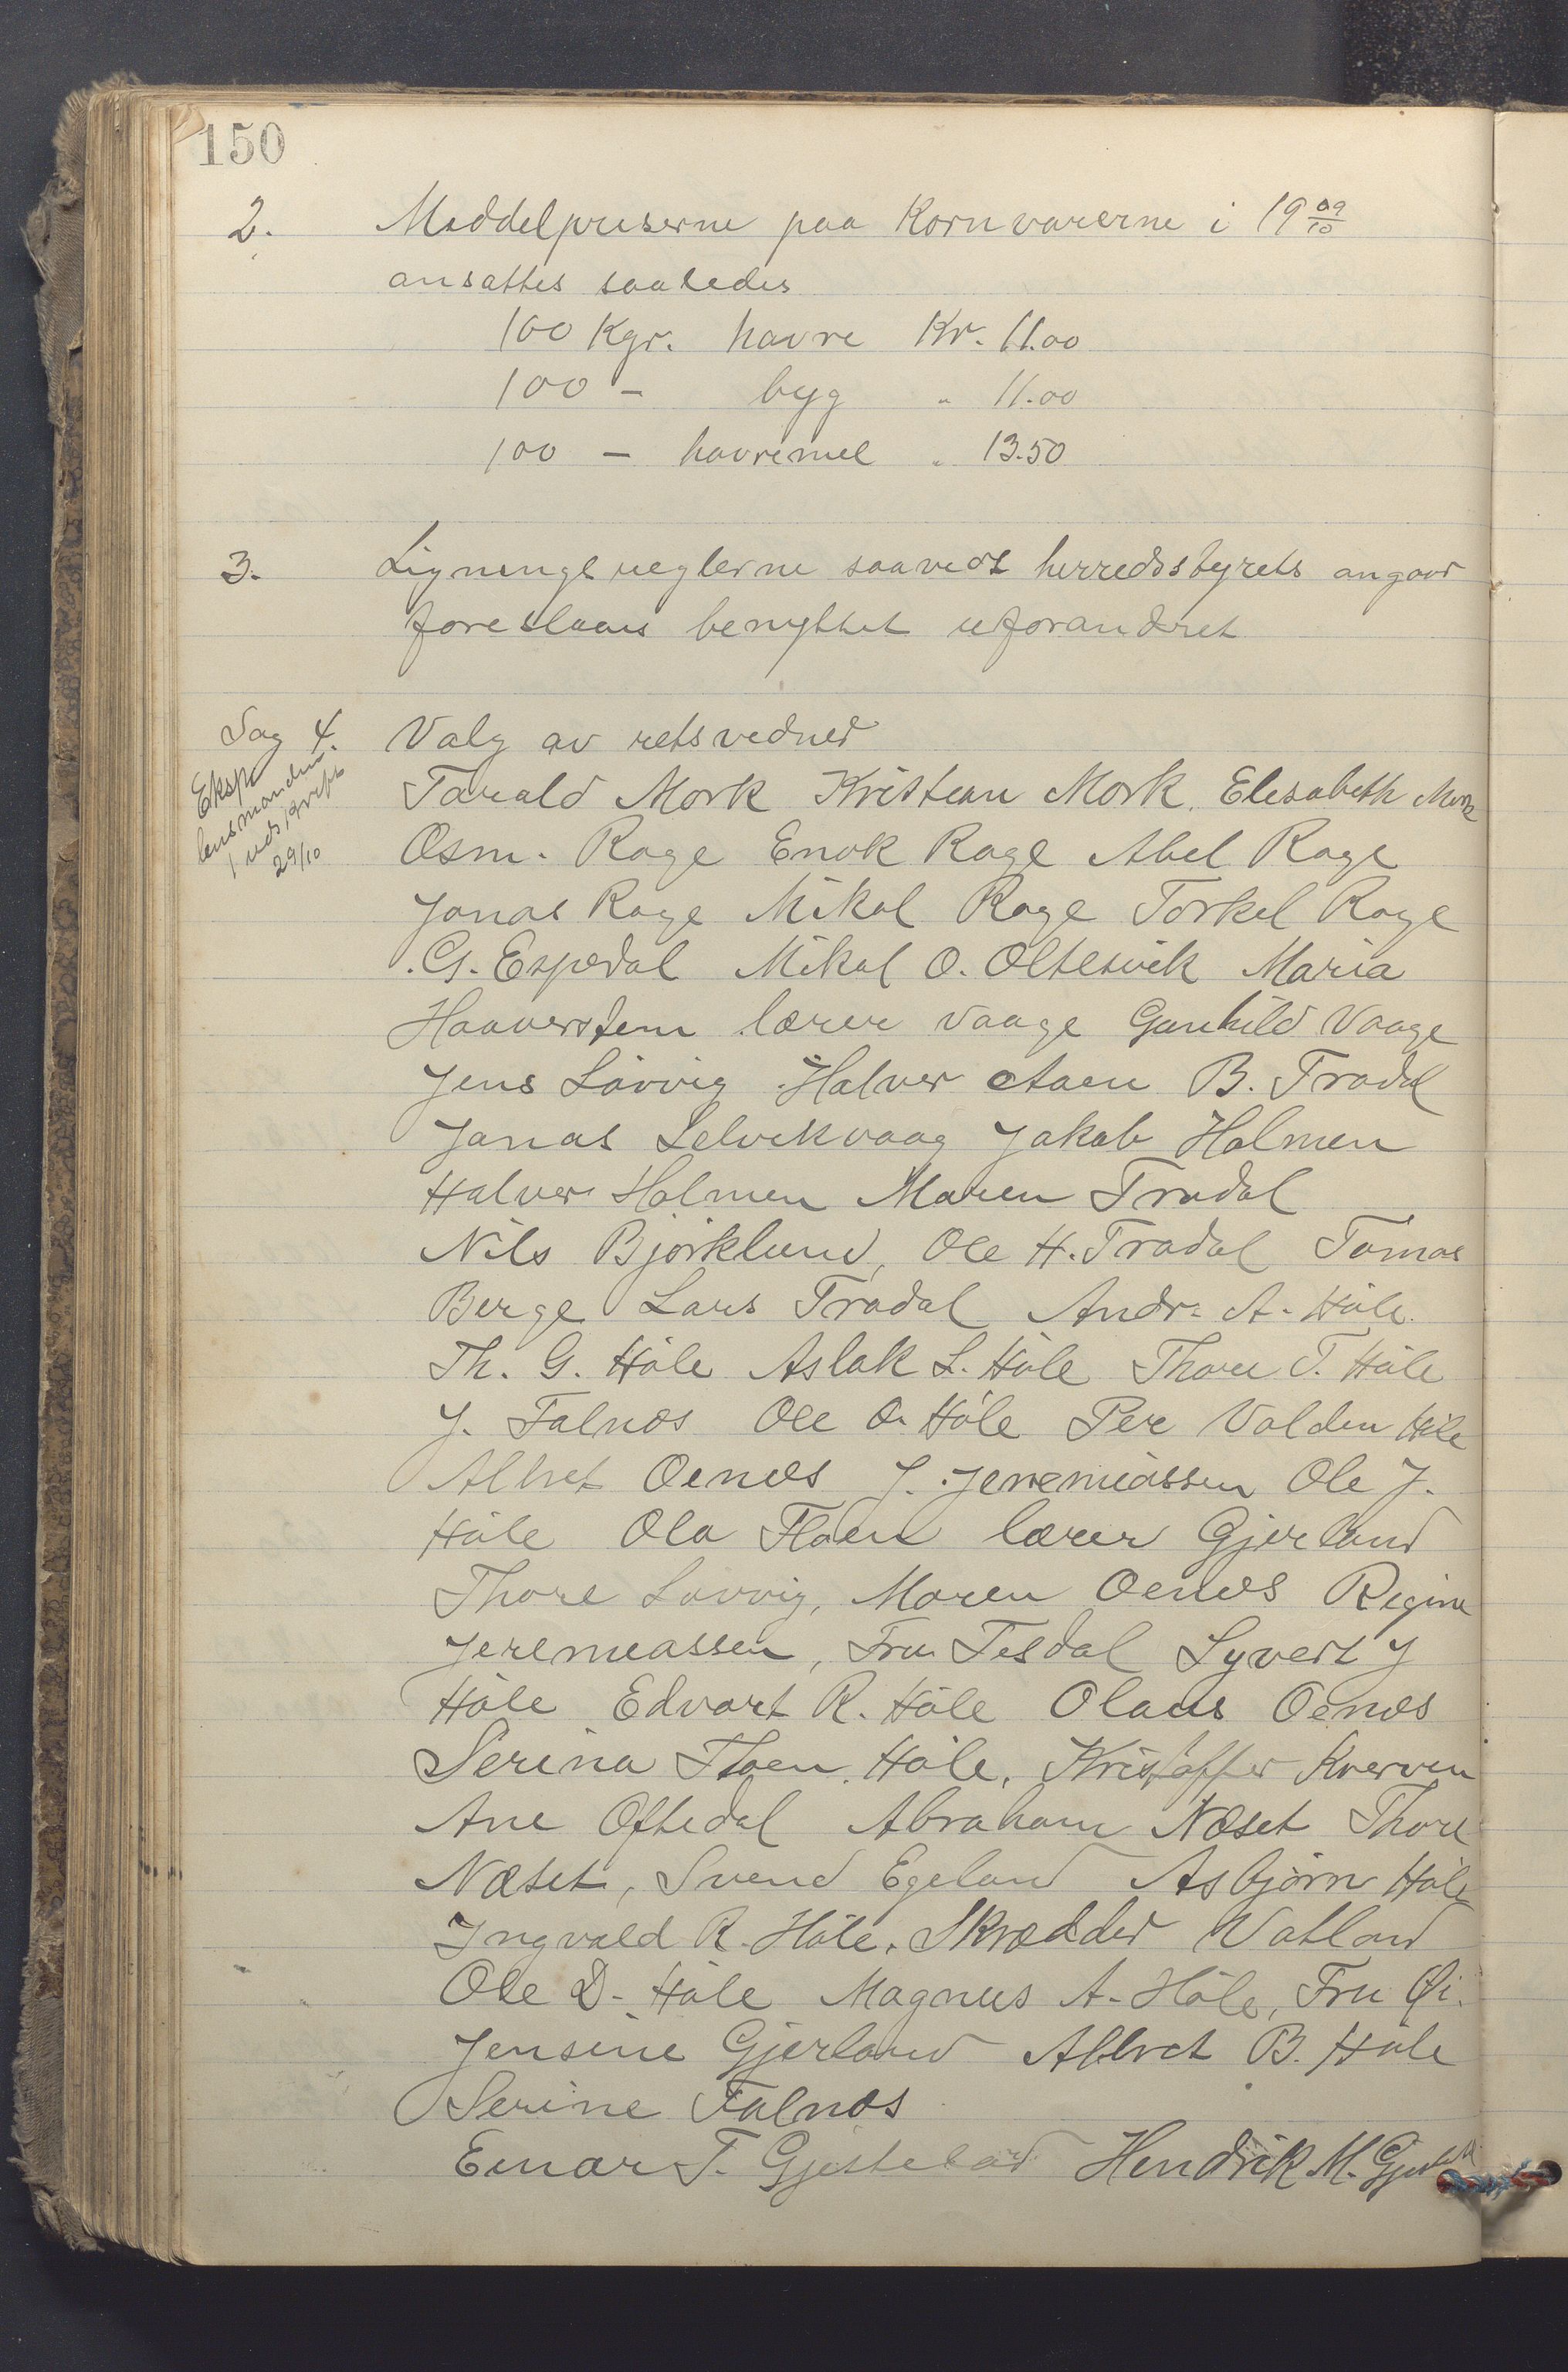 150
2. Middelpriserne paa Kornvarerne i 19 09/10
ansattes saaledes
100 Kgr. havre Kr. 11.00
100 - byg " 11.00
100 - havremel " 13.50
3. Ligningsreglerne saavidt herredsstyrets angaar
foreslaaes benyttet uforandret
Sag 4. Valg av retsvidner
Eksp
lensmanden
29/10
Tarald Mork Kristian Mork. Elisabeth Mork
Osm. Rage Enok Rage Abel Rage
Jonas Rage Mikal Rage Torkel Rage
G. Espedal Mikal O. Oltesvik Maria
Haaverstein lærer Vaage Gunhild Vaage
Jens Løvvig Halvor Aaen B. Tradal
Jonas Selvikvaag Jakob Holmen
Halvor Holmen Maren Tradal
Nils Bjørklund, Ole H. Tradal Tomas
Berge Lars Tradal Andr. A. Høle
Th. G. Høle Aslak L. Høle Thore T. Høle
J. Falnæs Ole O. Høle Per Valden Høle
Albret Oenæs J. Jeremiassen Ole J.
Høle Ola Floen lærer Gjerland
Thore Løvvig, Maren Oenæs Regine
Jeremiassen, Fru Tesdal Syvert J
Høle Edvart R. Høle Olaus Oenæs
Serina Floen Høle, Kristoffer Kverven
Ane Oftedal Abraham Næset Thore
Næset, Svend Egeland Asbjørn Høle
Ingvald R. Høle. Skrædder Vatland
Ole D. Høle Magnus A. Høle, Fru Øi.
Jensine Gjerland Albret B. Høle
Serine Falnæs
Einar T. Gjesteland Hendrik M.